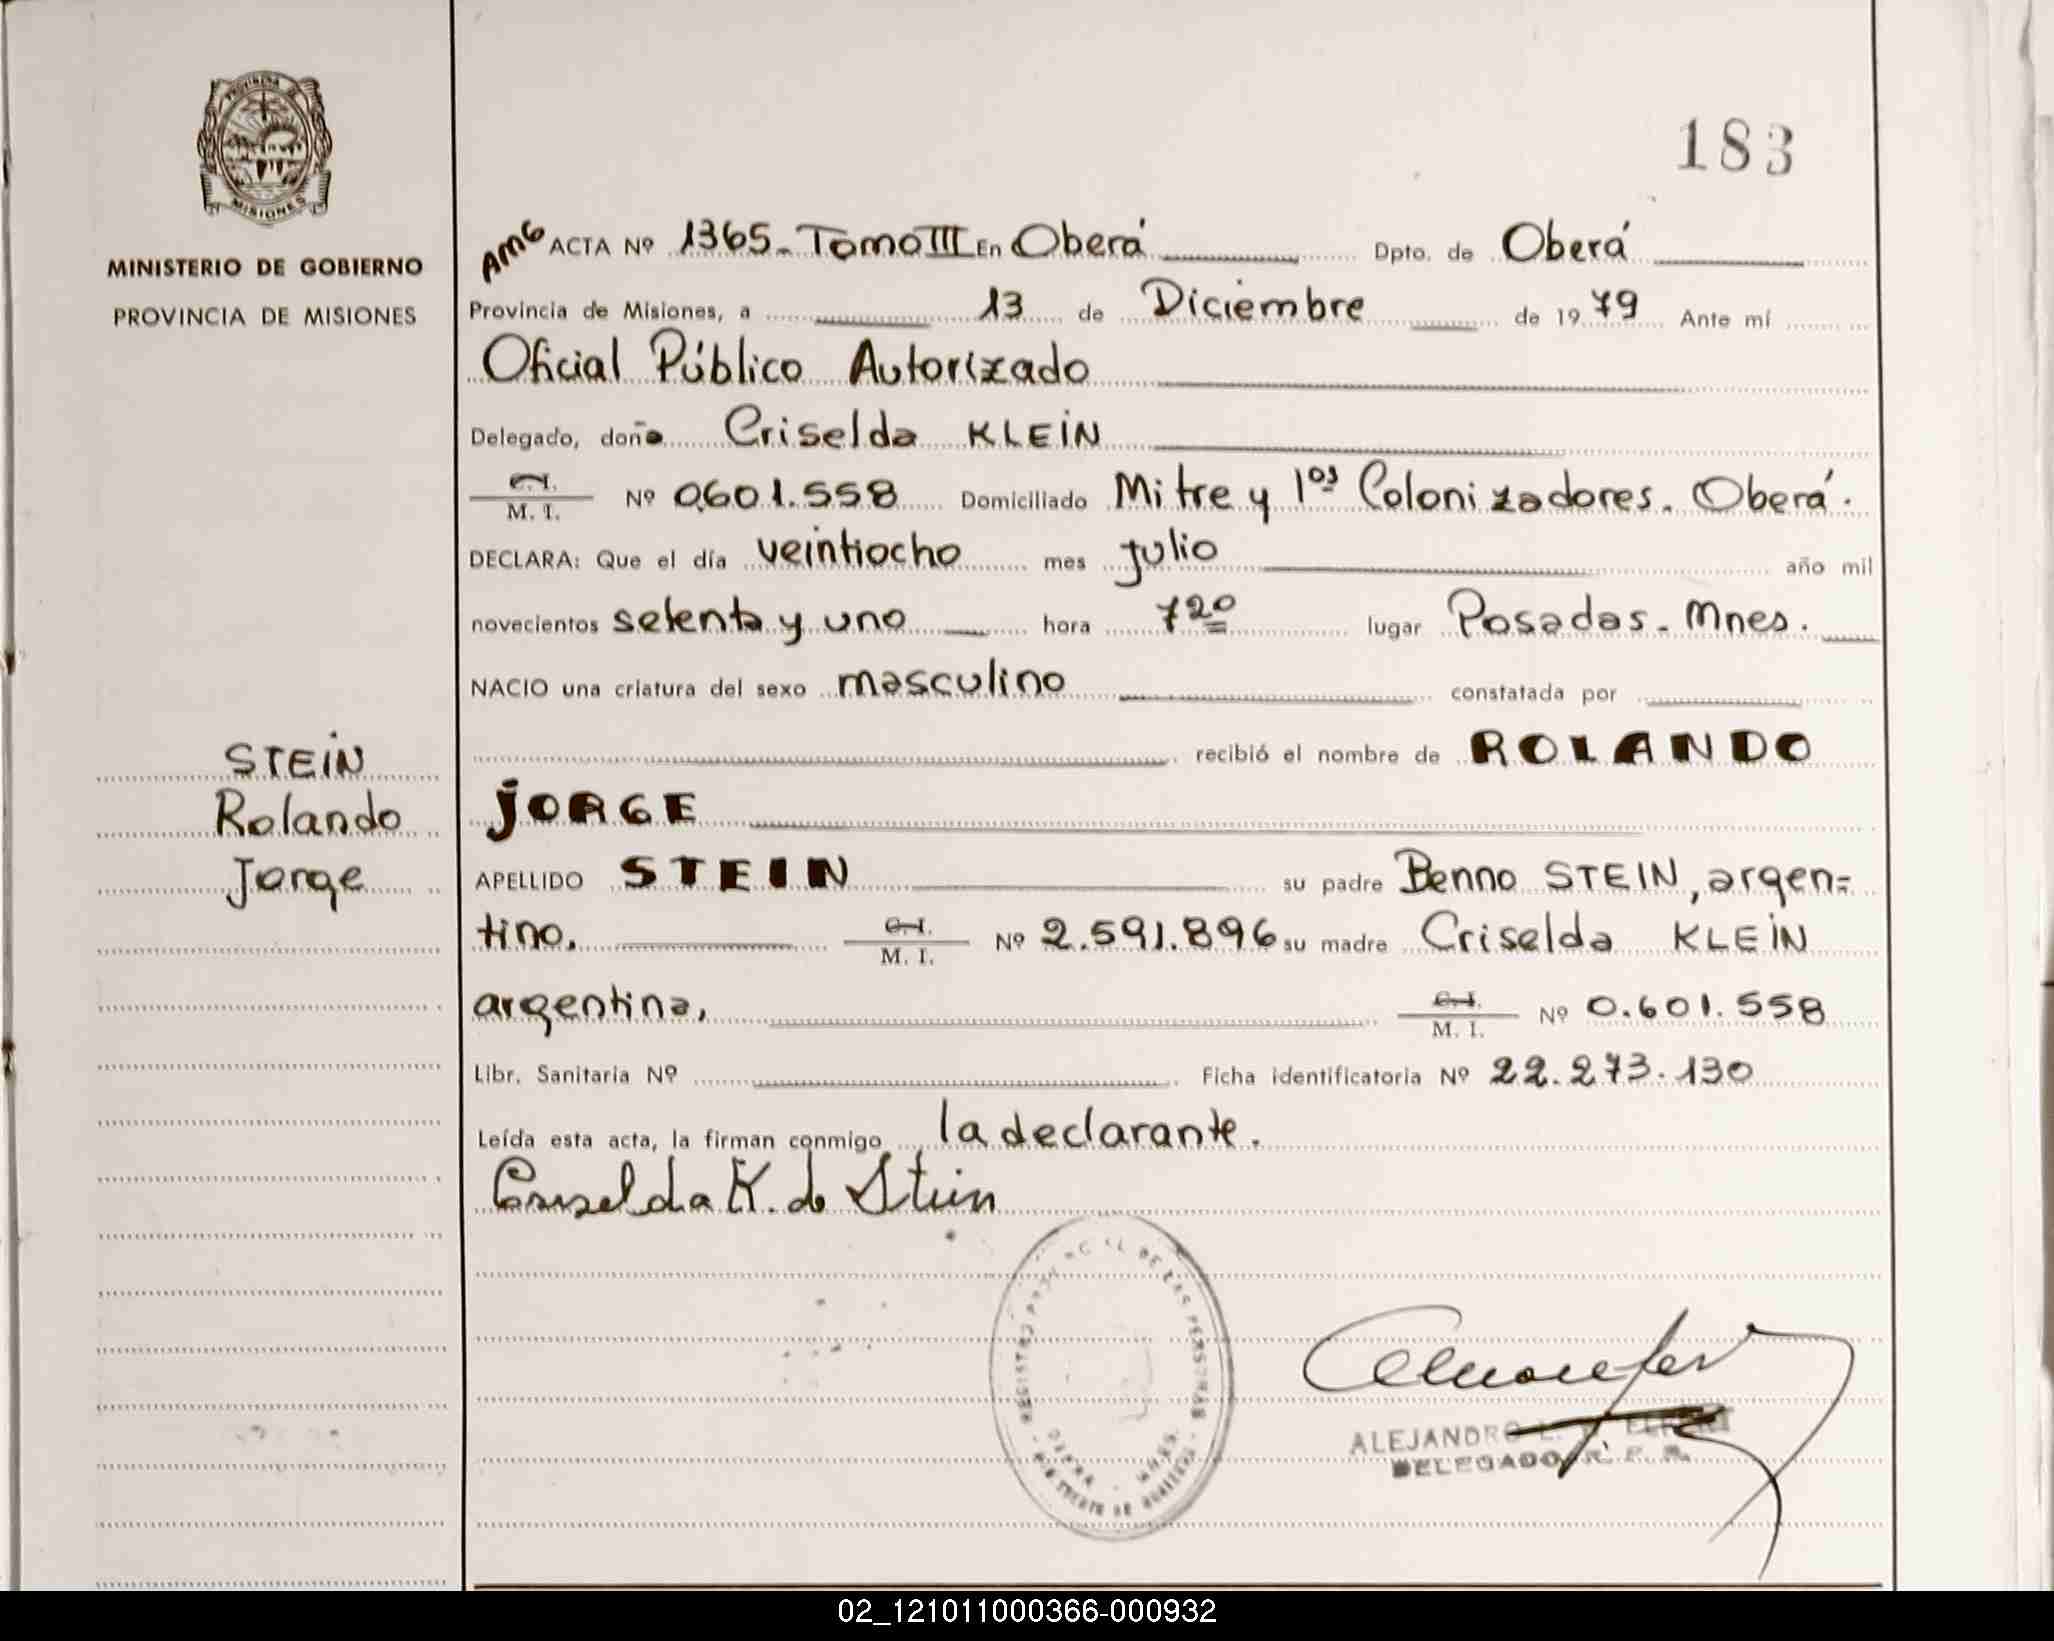 PROVINCIA DE
MISIONES
MINISTERIO DE GOBIERNO
PROVINCIA DE MISIONES
183
AMG ACTA Nº 1365_ Tomo III En Oberá Dpto. de Oberá
Provincia de Misiones, a 13 de Diciembre de 1979 Ante mí
Oficial Público Autorizado
Delegado, doña Criselda KLEIN
C.I.
M. I. Nº 0601.558 Domiciliado Mitre y 1os Colonizadores. Oberá.
DECLARA: Que el día veintiocho mes julio año mil
novecientos setenta y uno hora 720 lugar Posadas. Mnes.
NACIO una criatura del sexo masculino constatada por
recibió el nombre de ROLANDO
JORGE
STEIN
Rolando
Jorge
APELLIDO STEIN su padre Benno STEIN, argen=
tino, C.I.
M. I. Nº 2.591.896 su madre Criselda KLEIN
argentina, C.I.
M. I. Nº 0.601.558
Libr. Sanitaria Nº Ficha identificatoria Nº 22.273.130
Leída esta acta, la firman conmigo la declarante.
Criselda K. de Stein
REGISTRO PROVINCIAL DE LAS PERSONAS
OBERA - MNES.
ALEJANDRO L.
DELEGADO R. P. P.
02_121011000366-000932